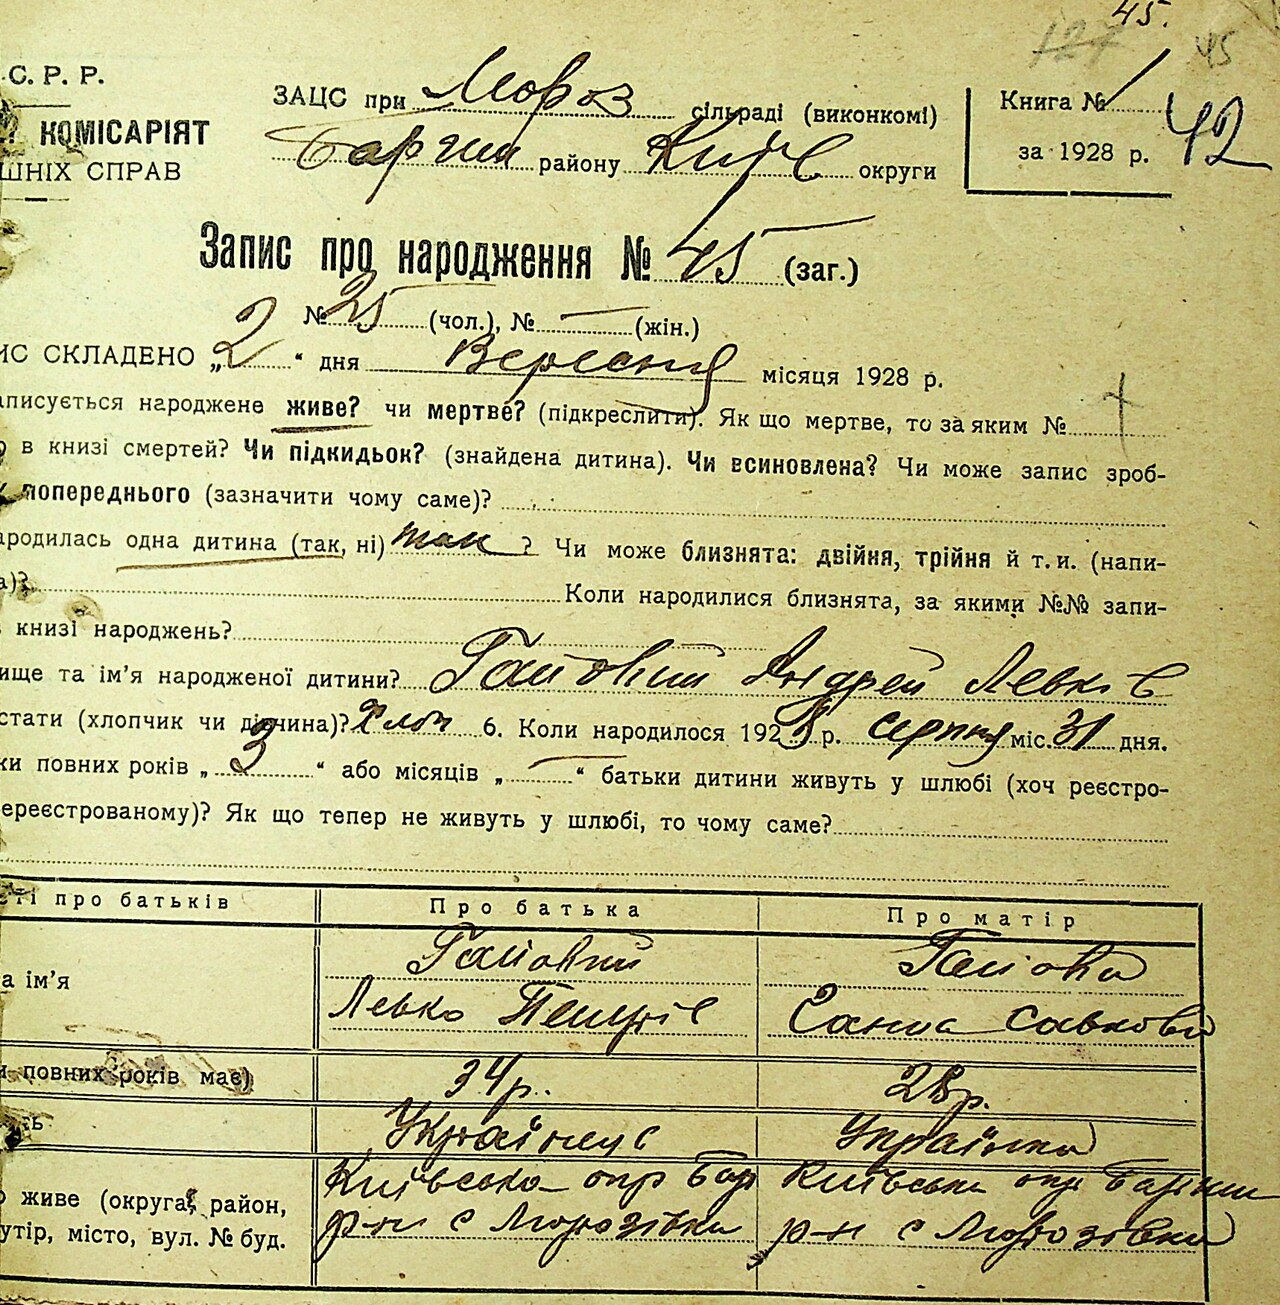 45.
127 45
С. Р. Р.
КОМІСАРІЯТ
ШНІХ СПРАВ
ЗАЦС при Мороз сільраді (виконкомі)
Баришп району Київ округи
Книга № 1
за 1928 р.
42
Запис про народження № 45 (заг.)
№ 25 (чол.), № — (жін.)
ИС СКЛАДЕНО „2“ дня Вересня місяця 1928 р.
аписується народжене живе? чи мертве? (підкреслити). Як що мертве, то за яким №
в книзі смертей? Чи підкидьок? (знайдена дитина). Чи всиновлена? Чи може запис зроб-
попереднього (зазначити чому саме)?
ародилась одна дитина (так, ні) так ? Чи може близнята: двійня, трійня й т. и. (напи-
а)? Коли народилися близнята, за якими №№ запи-
книзі народжень?
ище та ім'я народженої дитини? Гайовий Андрей Левків
стати (хлопчик чи дівчина)? Хлоп 6. Коли народилося 1928 р. серпня міс. 31 дня.
ки повних років „3“ або місяців „—“ батьки дитини живуть у шлюбі (хоч реєстро-
ереєстрованому)? Як що тепер не живуть у шлюбі, то чому саме?
ті про батьків Про батька Про матір
Гайовий Гайова
а ім'я
Левко Петрів Ганна Савкова
повних років має) 34 р. 28 р.
ь Українец Українка
Київська окр Бар Київська окр Бариш
живе (округа, район,
р-н с Морозівка р-н с Морозівка
утір, місто, вул. № буд.